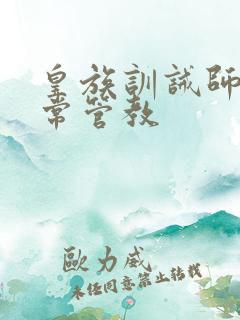 皇族訓誡師
常管教
歐力威
未經同意禁止轉載